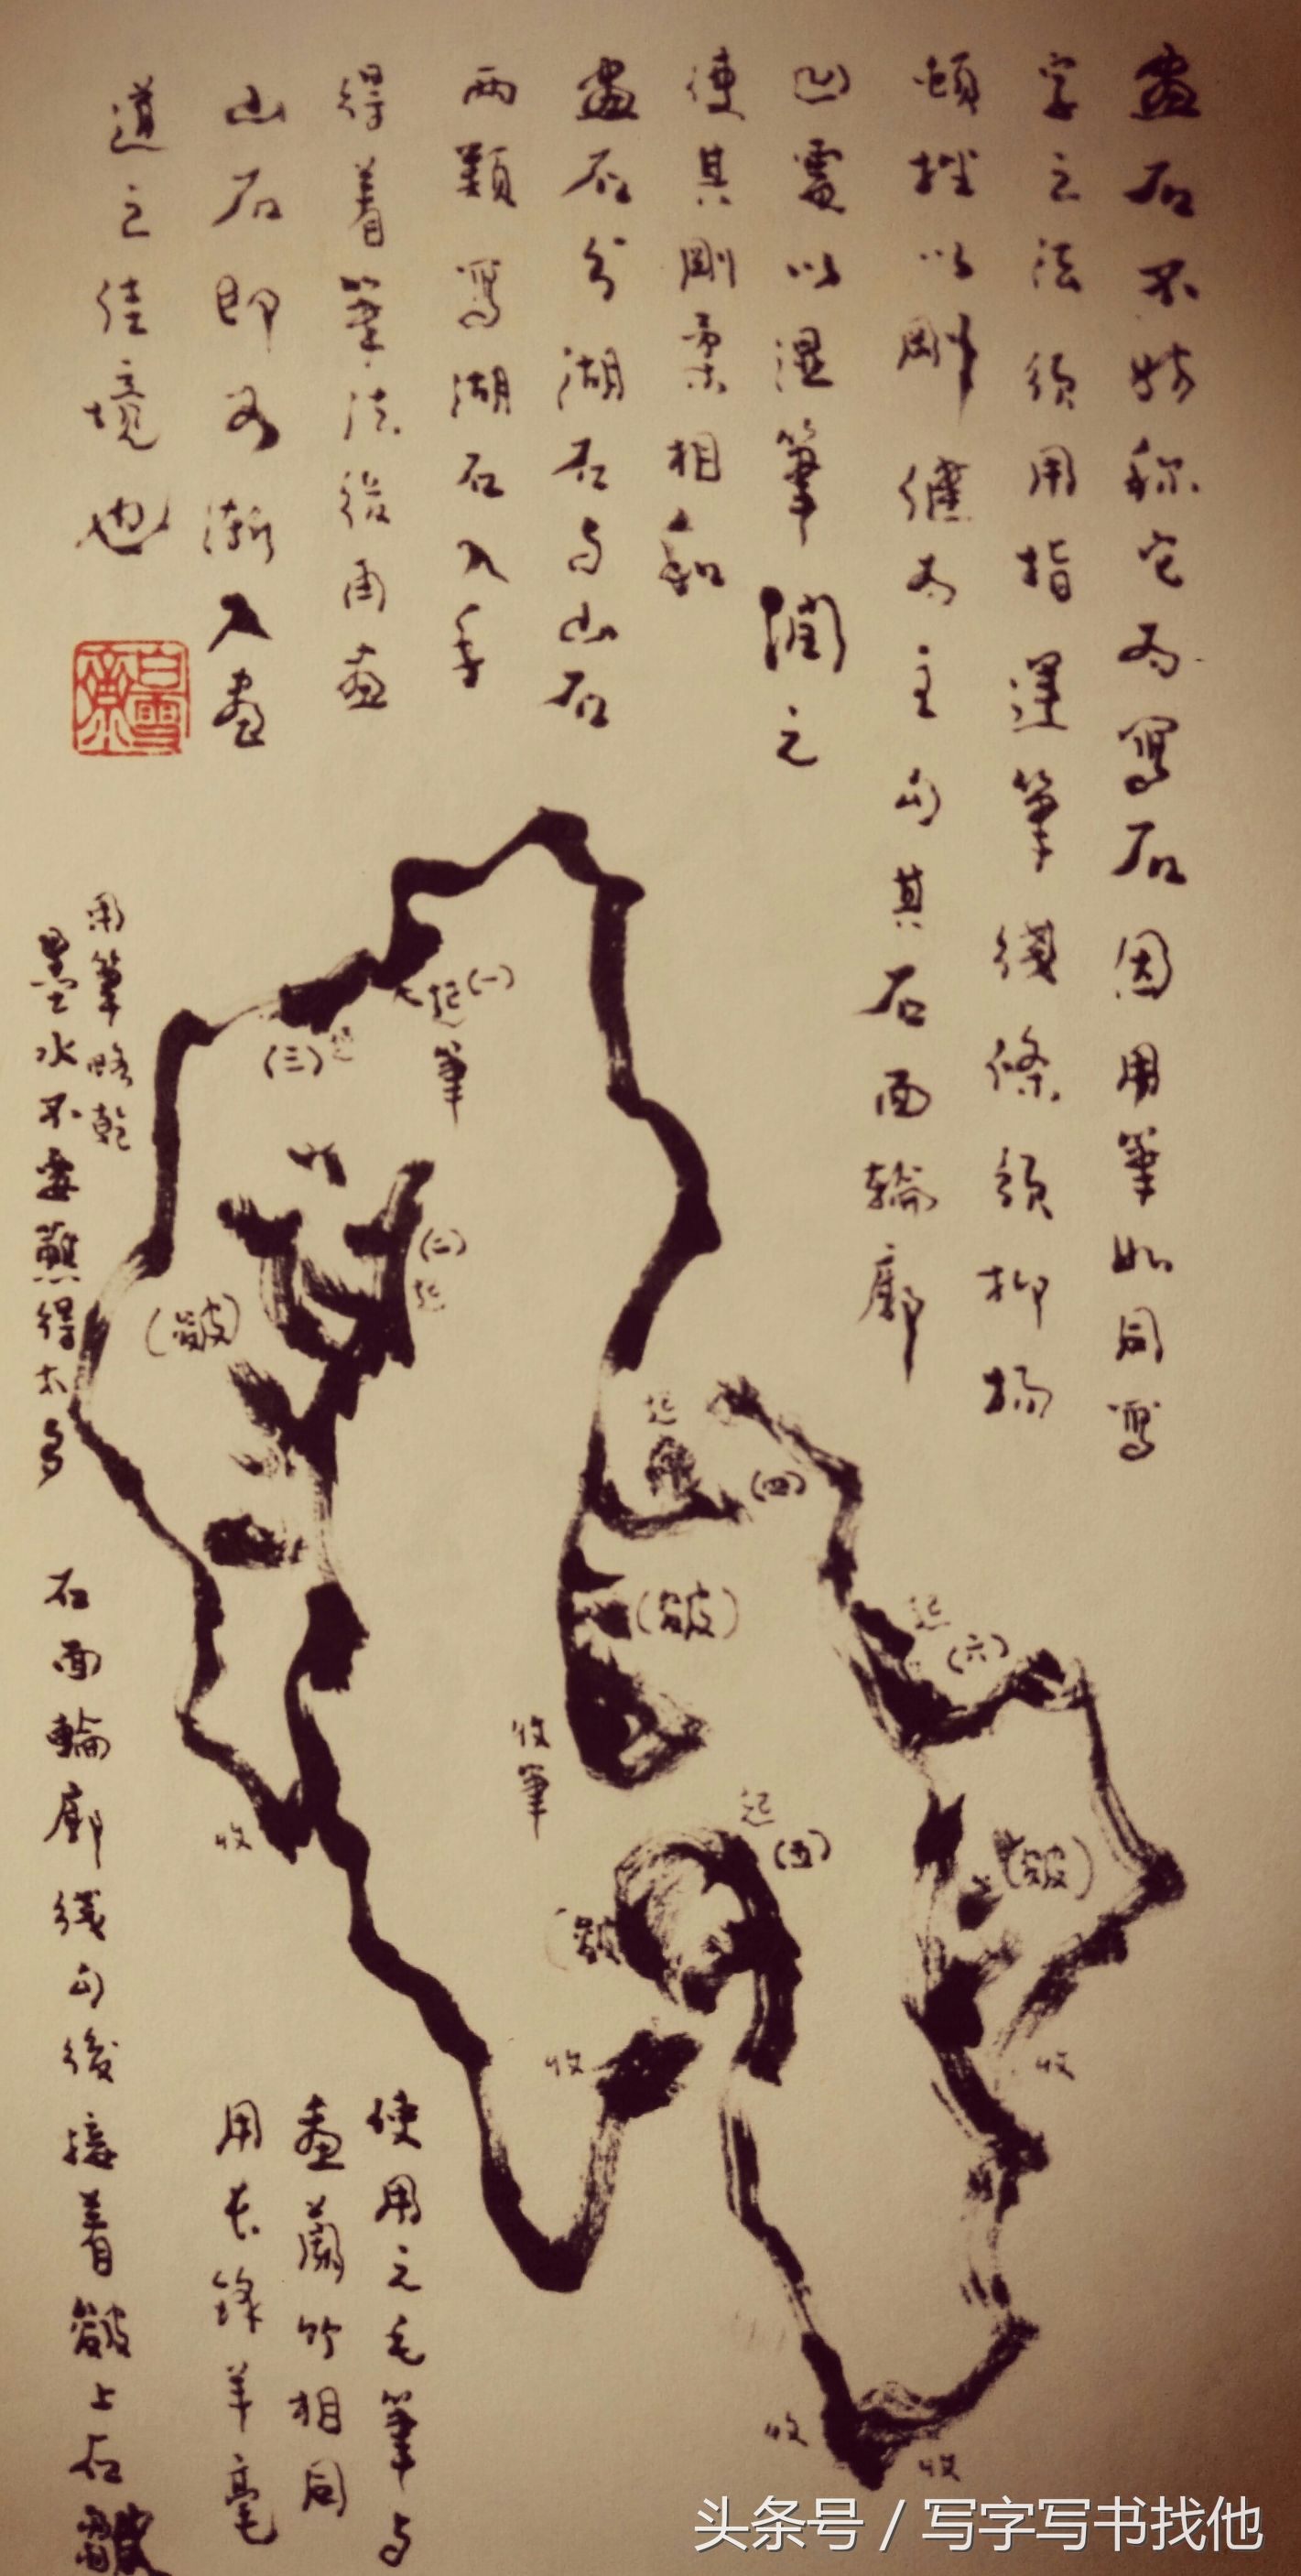 畫石不妨称它为寫石因用筆如同寫
字之法须用指運筆綫條须抑扬
頓挫以剛健为主勾其石面輪廓
凹處以湿筆潤之
使其剛柔相和
畫石分湖石与山石
两類寫湖石入手
得着筆法後再畫
山石即可漸入畫
道之佳境也
白雲齋
用筆略乾
墨水不要蘸得太多
(一)
起筆
(三)起
(二)起
(皴)
起
(四)
(皴)
起
(六)
收筆
起
(五)
(皴)
(皴)
收
收
收
收
收
石面輪廓綫勾後接着皴上石皴
使用之毛筆与
畫蘭竹相同
用长鋒羊毫
头条号 / 写字写书找他